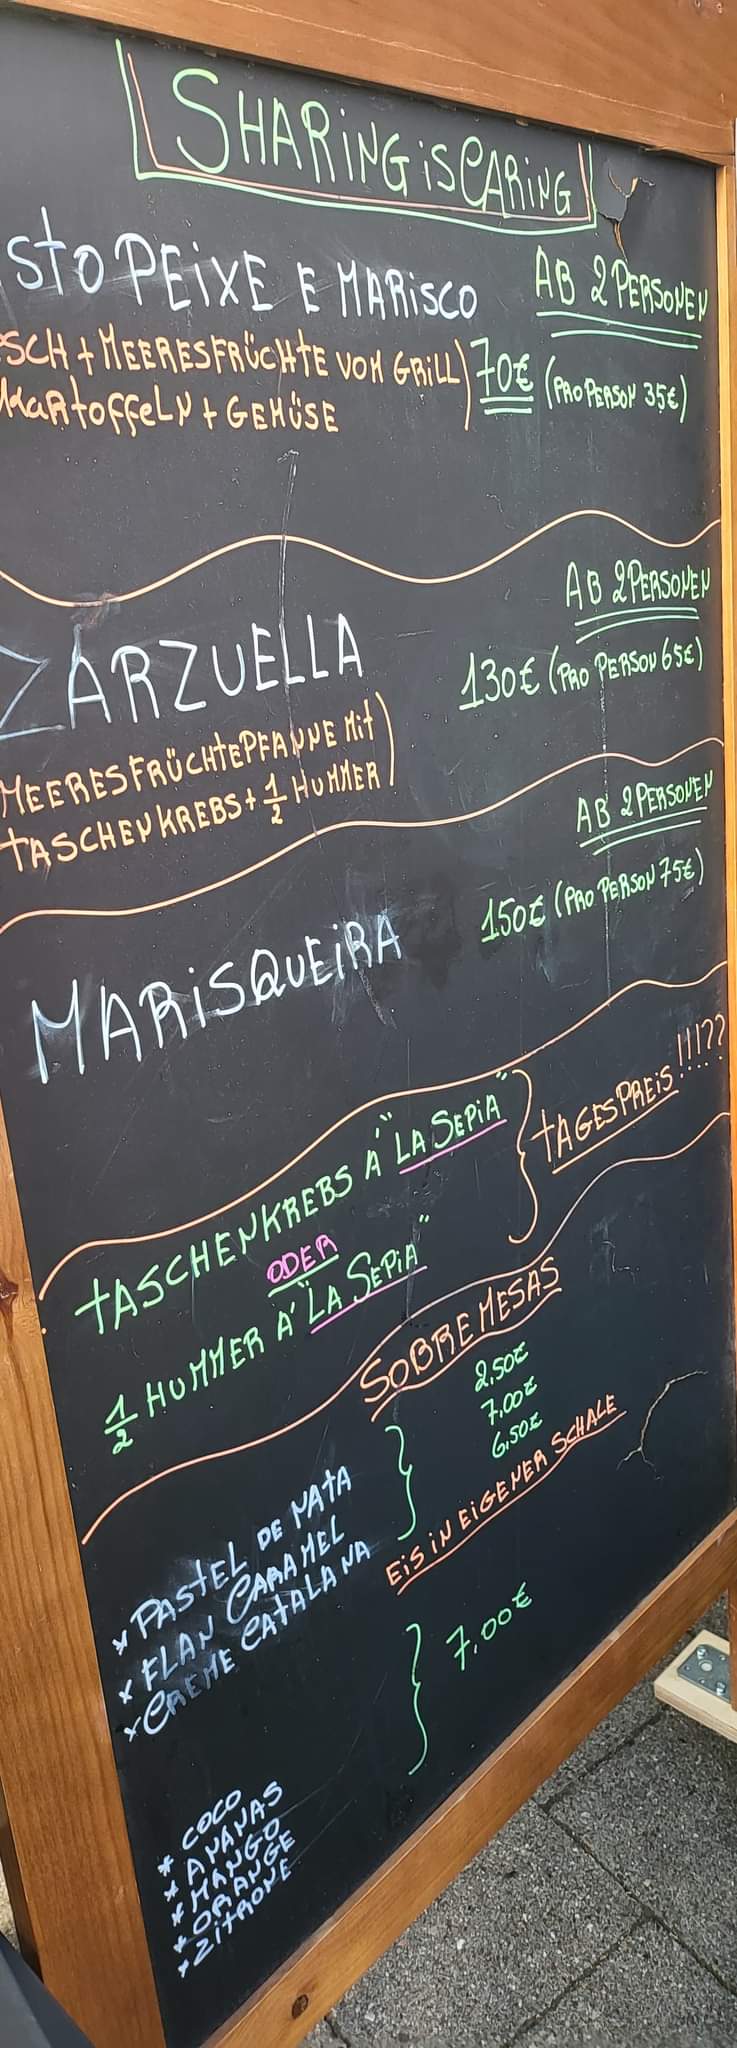 SHARING iS CARiNG
sto PEiXE E MARiSCO
AB 2 PERSONEN
SCH + MEERESFRÜCHTE VOM GRiLL)
KARtoffeLN + GEMÜSE
70€ (PRO PERSON 35€)
ZARZUELLA
AB 2 PERSONEN
130€ (PRO PERSON 65€)
MEERESFRÜCHTEPFANNE Mit
tASCHENKREBS + 1/2 HUMMER)
AB 2 PERSONEN
150€ (PRO PERSON 75€)
MARiSQUEiRA
tASCHENKREBS Á "LA SEPiA"
ODER
1/2 HUMMER Á "LA SEPiA"
tAGESPREiS!!!??
SOBREMESAS
* PAStEL DE NAtA 2,50€
* FLAN CARAMEL 7,00€
* CREME CAtALANA 6,50€
EiS iN EiGENER SCHALE
* COCO
* ANANAS
* MANGO
* ORANGE
* ZitRONE
7,00€